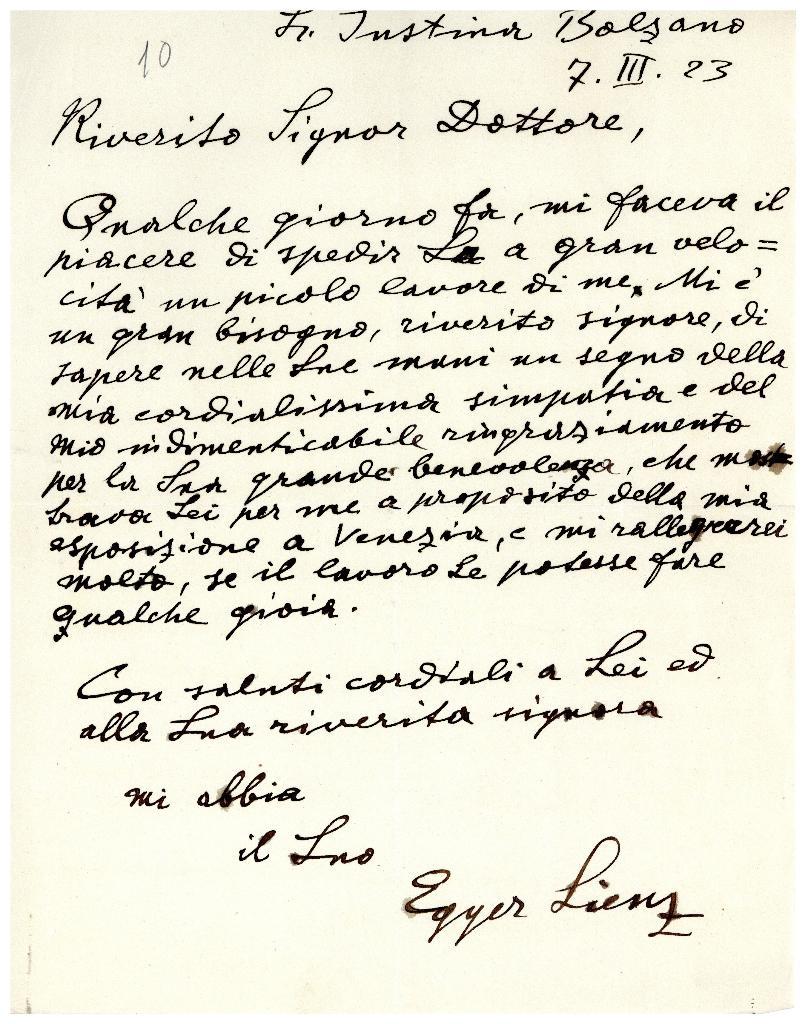 10
St. Justina Bolzano
7. III. 23
Riverito Signor Dottore,
Qualche giorno fa, mi faceva il
piacere di spedir La a gran velo=
cità un picolo lavore di me. Mi è
un gran bisogno, riverito signore, di
sapere nelle Sue mani un segno della
mia cordialissima simpatia e del
mio indimenticabile ringraziamento
per la Sua grande benevolenza, che mos
trava Lei per me a proposito della mia
esposizione a Venezia, e mi rallegrerei
molto, se il lavoro Le potesse fare
qualche gioia.
Con saluti cordiali a Lei ed
alla Sua riverita signora
mi abbia
il Suo
Egger Lienz